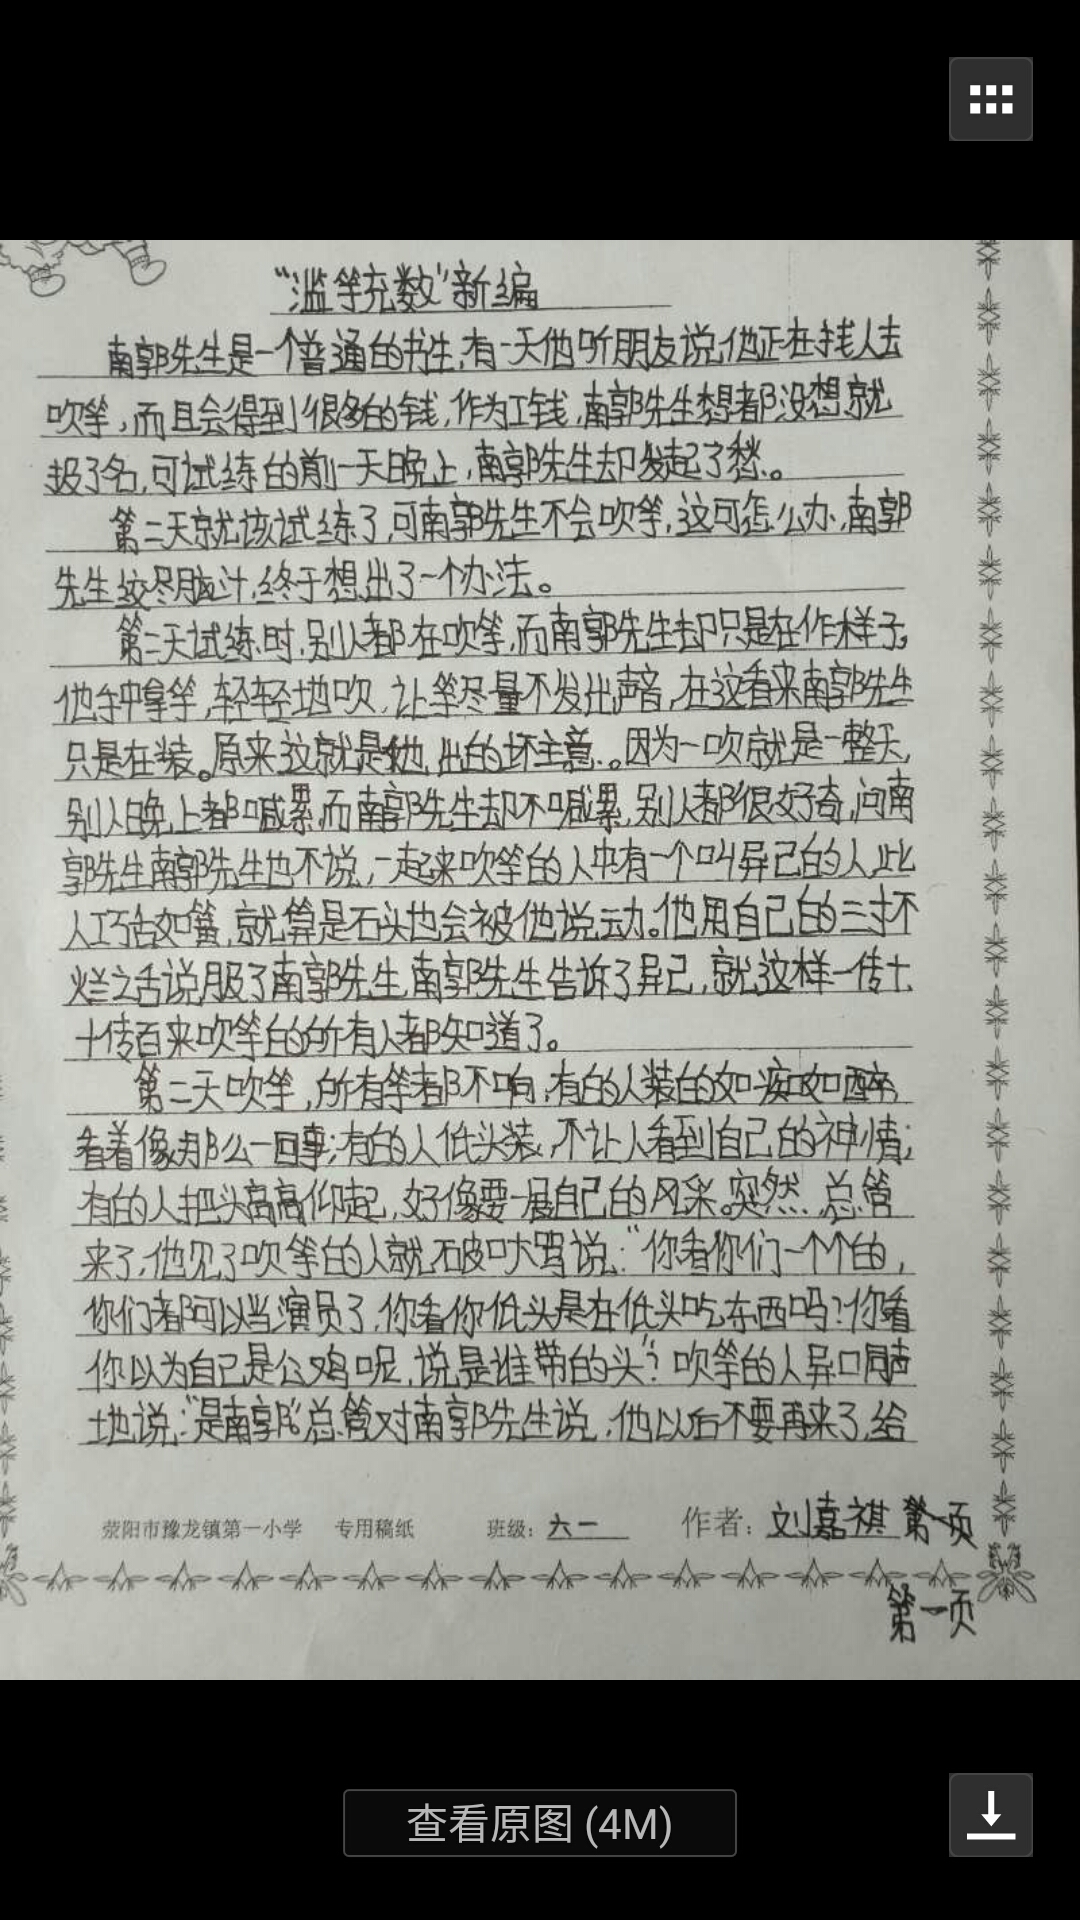 “滥竽充数”新编
南郭先生是一个普通的书生,有一天他听朋友说,他正在找人去
吹竽,而且会得到很多的钱,作为工钱,南郭先生想都没想就
报了名,可试练的前一天晚上,南郭先生却发起了愁。
第二天就该试练了,可南郭先生不会吹竽,这可怎么办,南郭
先生绞尽脑汁,终于想出了一个办法。
第二天试练时,别人都在吹竽,而南郭先生却只是在作样子,
他手中拿竽,轻轻地吹,让竽尽量不发出声音,在这看来南郭先生
只是在装。原来这就是他出的坏主意。因为一吹就是一整天,
别人晚上都喊累,而南郭先生却不喊累,别人都很好奇,问南
郭先生南郭先生也不说,一起来吹竽的人中有一个叫异己的人,此
人巧舌如簧,就算是石头也会被他说动。他用自己的三寸不
烂之舌说服了南郭先生,南郭先生告诉了异己,就这样一传十
十传百来吹竽的所有人都知道了。
第二天吹竽,所有竽都不响,有的人装的如痴如醉,
看着像那么一回事;有的人低头装,不让人看到自己的神情;
有的人把头高高仰起,好像要一展自己的风采。突然,总管
来了,他见了吹竽的人就破口大骂说:“你看你们一个个的,
你们都可以当演员了,你看你低头是在低头吃东西吗?你看
你以为自己是公鸡呢,说是谁带的头”?吹竽的人异口同声
地说:“是南郭”总管对南郭先生说,他以后不要再来了,给
荥阳市豫龙镇第一小学 专用稿纸 班级:六一 作者:刘嘉祺 第一页
第一页
查看原图 (4M)